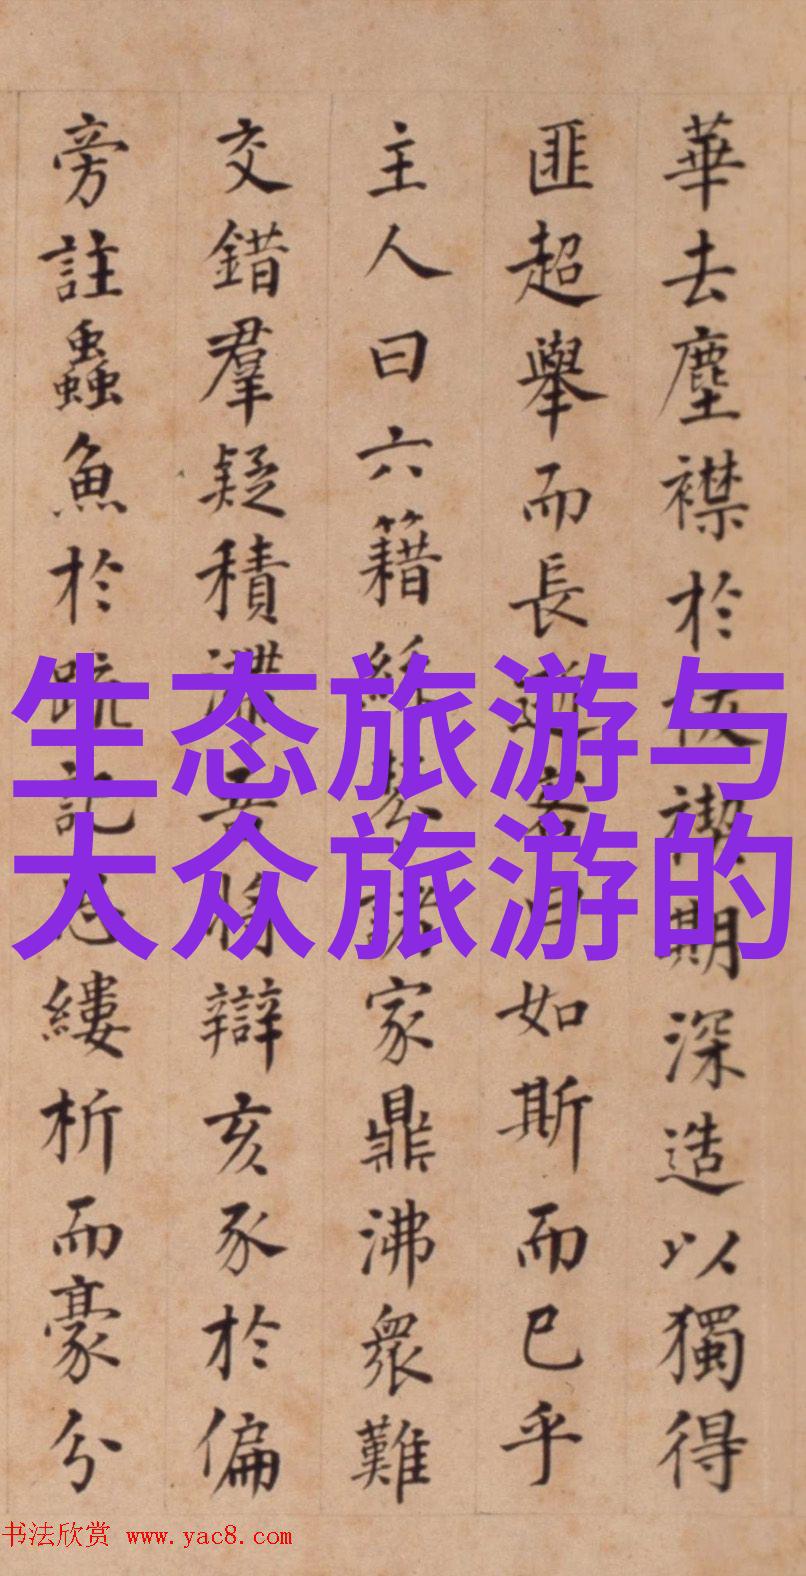 華去塵襟於披襖期深造以獨得
匪超舉而長遊客曰如斯而已乎
主人曰六籍紛綸諸家鼎沸衆難
交錯羣疑積滯吾將辯亥豕於偏
旁註蟲魚於疏記忽縷析而豪分
生态旅游与
大众旅游的
书法欣赏 www.yac8.com